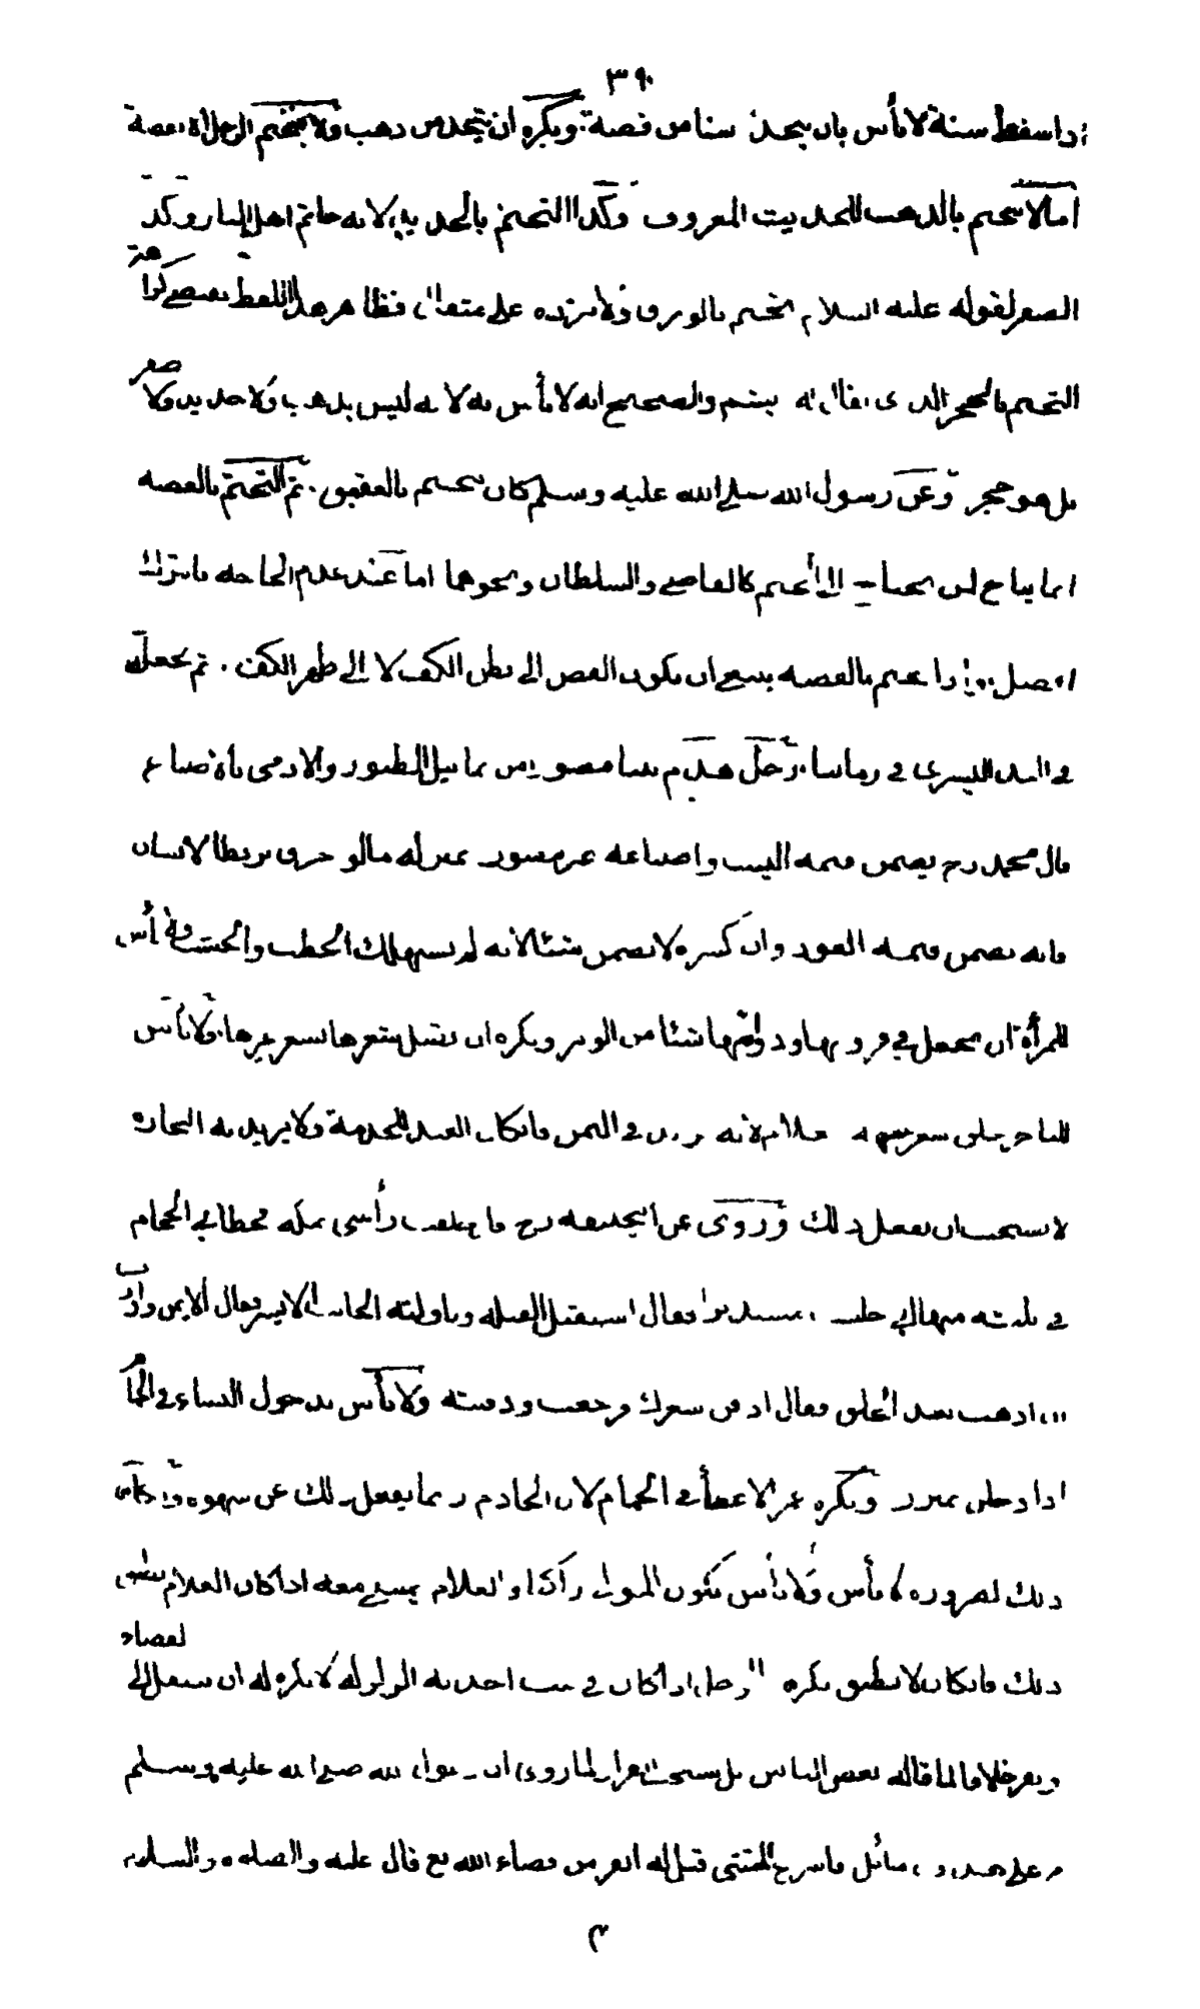 ٣٩٠
اذا سقط سنة لا بأس بان يتخذ سنا من فضة ويكره ان يتخذ من ذهب ولا يتختم الرجل الا بفضة
اما لا يتختم بالذهب للحديث المعروف وكذا التختم بالحديد لانه خاتم اهل النار وكذا
الصفر لقوله عليه السلام تختم بالورق ولا تزده على مثقال فظاهر هذا اللفظ يقتضى كراهة
التختم بالحجر الذى يقال له يشم والصحيح انه لا بأس به لانه ليس بذهب ولا حديد ولا صفر
بل هو حجر وعن رسول الله صلى الله عليه وسلم كان يتختم بالعقيق ثم التختم بالفضة
انما يباح لمن يحتاج الى التختم كالقاضى والسلطان ونحوهما اما عند عدم الحاجة بالترك
افضل واذا تختم بالفضة ينبغى ان يكون الفص الى بطن الكف لا الى ظهر الكف ثم يجعله
فى اليد اليسرى فى زماننا رجل هدم بيتا مصورا من تماثيل الطيور والادمى بالاصباغ
قال محمد رح يضمن قيمة البيت واصباغه غير مصور بمنزلة ما لو حرق بربطا لانسان
فانه يضمن قيمة العود وان كسره لا يضمن شيئا لانه لم يستهلك الحطب والخشب ولا بأس
للمرأة ان تجعل فى قرونها وذوائبها شيئا من الوبر ويكره ان تصل شعرها بشعر غيرها ولا بأس
للتاجر على شعر جبهة غلام لانه يزيد فى الثمن فان كان العبد للخدمة ولا يريد به التجارة
لا يستحب ان يفعل ذلك وروى عن ابى حنيفة رح قال حلقت رأسى بمكة فخطأنى الحجام
فى ثلاثة منها انى جلست مستدبرا فقال استقبل القبلة وناولته الجانب الايسر فقال الايمن واردت
ان اذهب بعد الحلق فقال ادفن شعرك فرجعت ودفنته ولا بأس بدخول النساء فى الحمام
اذا دخلن بمئزر ويكره غمز الاعضاء فى الحمام لان الخادم ربما يفعل ذلك عن شهوة وان كان
ذلك لضرورة لا بأس ولا بأس بكون المولى راكبا والغلام يمشى معه اذا كان الغلام يطيق
ذلك فان كان لا يطيق يكره رجل اذا كان فى بيت اخذته الزلزلة لا يكره له ان ينتقل الى الفضاء
ويفر خلافا لما قاله بعض الناس بل يستحب الفرار لما روى ان رسول الله صلى الله عليه وسلم
مر على هدف مائل فاسرع المشى فقيل له اتفر من قضاء الله تع فقال عليه الصلوة والسلام